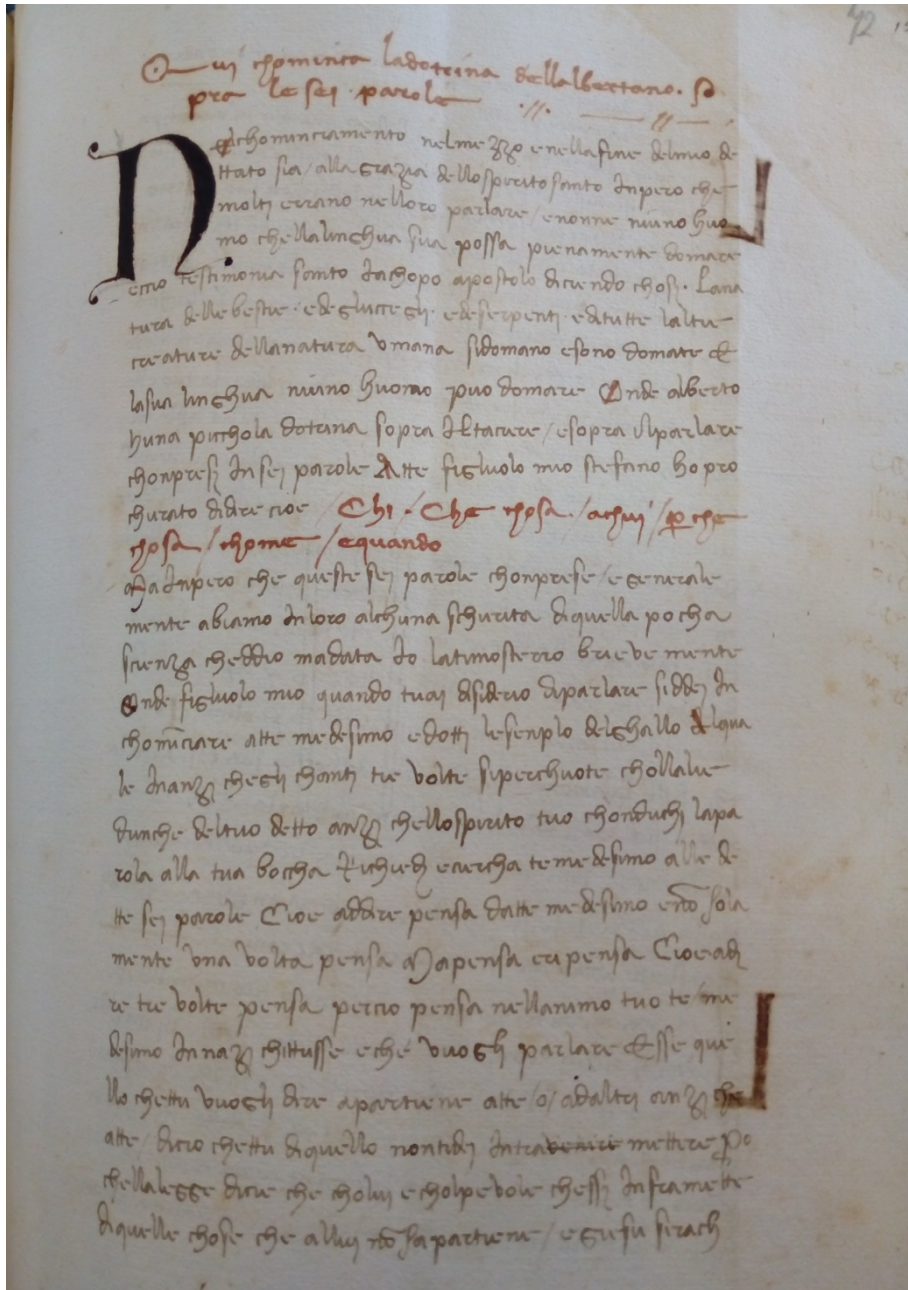 Qui chomincia ladotrina dellalbertano. so
pra le sei. parole .//. — // —
Nelchominciamento nelmezzo enellafine delmio de
ttato sia / alla grazia dellospirito santo Inpero che
molti errano nelloro parlare / enonne niuno huo
mo chellalinghua sua possa pienamente domare
eccio testimonia santo Iachopo apostolo diciendo chosi. Lana
tura delle bestie. edegluccegli. edeserpenti. editutte laltre
creature dellanatura umana sidomano esono domate E
lasua linghua niuno huomo puo domare Onde alberto
huna pichola dotrina sopra Iltacere / esopra Ilparlare
chonpresi Insei parole Atte figluolo mio stefano ho pro
churato didire cioe / Chi. Che chosa / achui / perche
chosa / chome / equando
Mainpero che queste sei parole chonprese / e generale
mente abiamo Inloro alchuna schurita diquella pocha
scienza cheddio madata Io latimosterro brievemente
Onde figluolo mio quando tuai disiderio diparlare siddei In
chominciare atte medesimo edotti lesenplo delghallo Elqua
le Inanzi chegli chanti tre volte siperchuote chollalie
dunche deltuo detto anzi chellospirito tuo chonduchi lapa
rola alla tua boccha Richiedi eciercha temedesimo alle de
tte sei parole Cioe addire pensa datte medesimo enon sola
mente una volta pensa Mapensa eripensa Cioe adi
re tre volte pensa percio pensa nellanimo tuo te / me
desimo Innazi chittusse eche vuogli parlare Esse que
llo chettu vuogli dire apartiene atte / o / adaltri anzi che
atte / dicio chettu diquello nontidei Intravenire mettere Po
chellalegge dicie che cholui echolpevole chessi Inframette
diquelle chose che allui non sapartiene / egiesu sirach